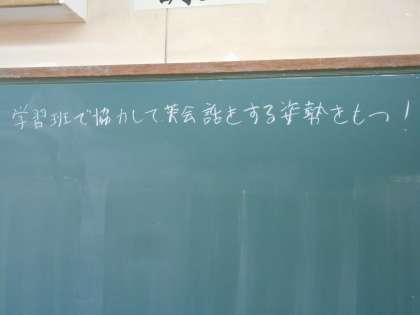 学習班で協力して英会話をする姿勢をもつ!